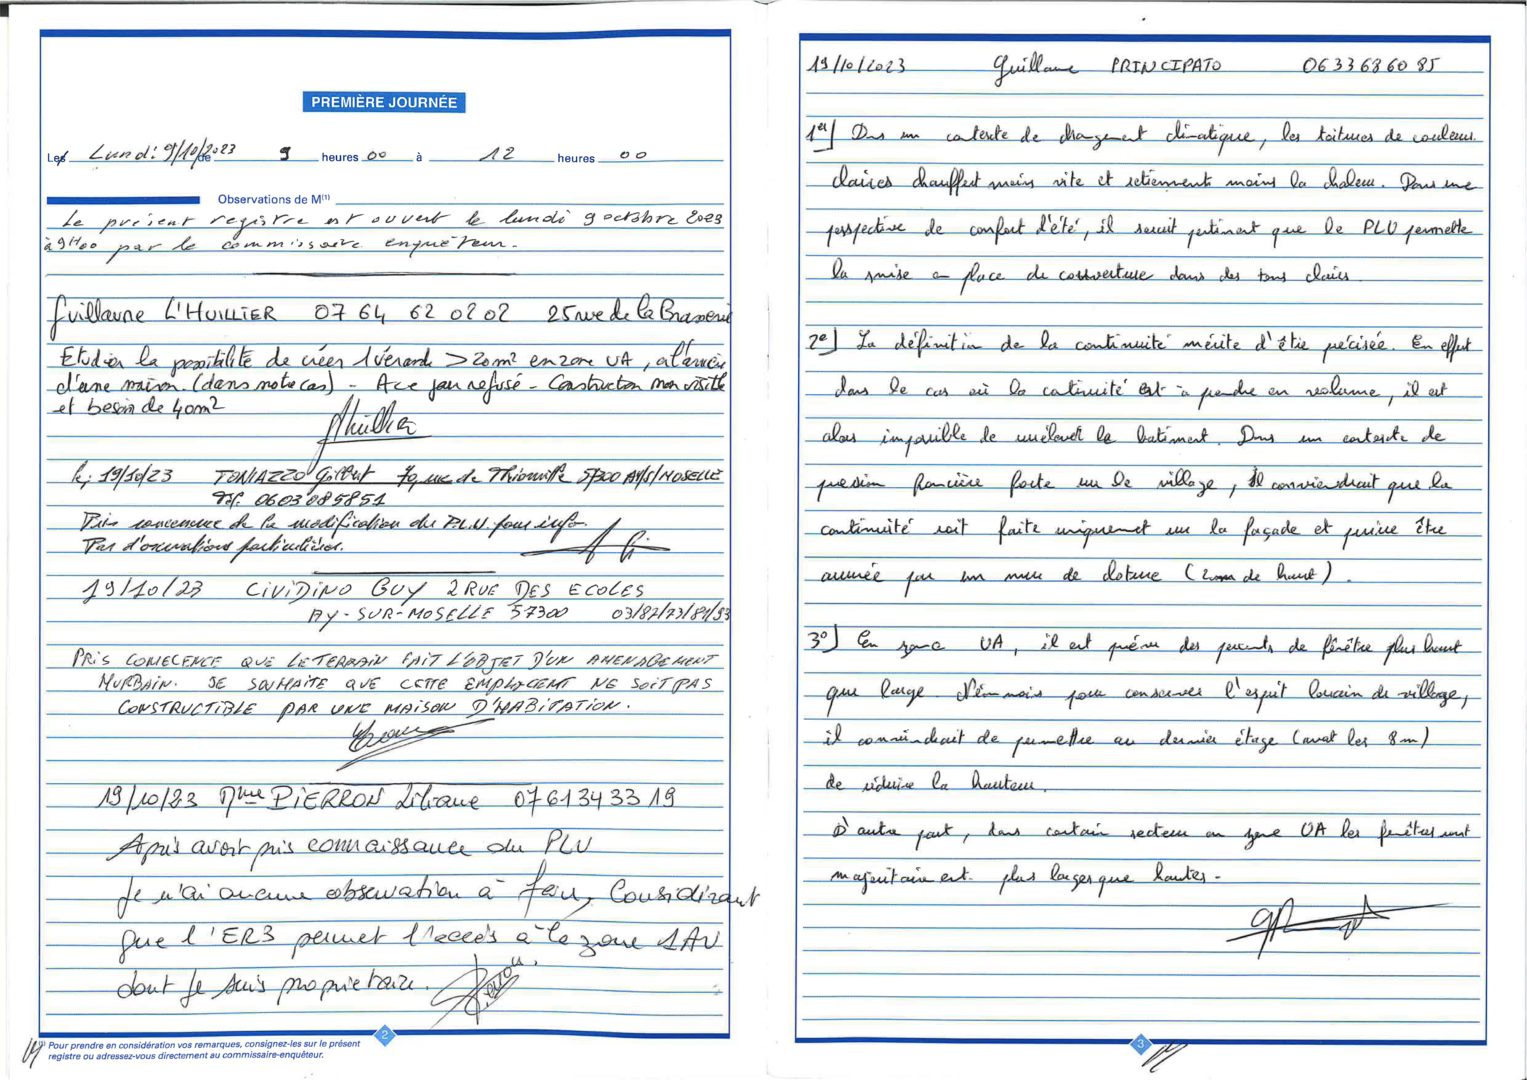 PREMIÈRE JOURNÉE
Les Lundi 9/10/2023 de 9 heures 00 à 12 heures 00
Observations de M(1)
Le présent registre est ouvert le lundi 9 octobre 2023
à 9H00 par le commissaire enquêteur.
Guillaume L'HUILLIER 07 64 62 02 02 25 rue de la Brasserie
Etudier la possibilité de créer 1 véranda > 20m² en zone UA, à l'arrière
d'une maison. (dans notre cas) - A ce jour refusé - Construction non visible
et besoin de 40m²
le 19/10/23 TOMAZZO Gilbert 70, rue de Thionville 57300 AY/S/MOSELLE
Tél. 0603085851
Pris connaissance de la modification du P.L.U. pour info.
Pas d'observations particulières.
19/10/23 CIVIDINO GUY 2 RUE DES ECOLES
AY-SUR-MOSELLE 57300 03/87/73/81/93
PRIS CONECENCE QUE LE TERRAIN FAIT L'OBJET D'UN AMENAGEMENT
MURBAIN. JE SOUHAITE QUE CETTE EMPLACEMENT NE SOIT PAS
CONSTRUCTIBLE PAR UNE MAISON D'HABITATION.
19/10/23 Mme PIERRON Liliane 0761343319
Après avoir pris connaissance du PLU
Je n'ai aucune observation à faire, Considérant
que l'ER3 permet l'accès à la zone 1AU
dont je suis propriétaire.
2
(1) Pour prendre en considération vos remarques, consignez-les sur le présent
registre ou adressez-vous directement au commissaire-enquêteur.
19/10/2023 Guillaume PRINCIPATO 06 33 68 60 85
1er] Dans un contexte de changement climatique, les toitures de couleurs
claires chauffent moins vite et retiennent moins la chaleur. Dans une
perspective de confort d'été, il serait pertinent que le PLU permette
la mise en place de couverture dans des tons clairs.
2e] La définition de la continuité mérite d'être précisée. En effet
dans le cas où la continuité est à prendre en volume, il est
alors impossible de surélever le batiment. Dans un contexte de
pression foncière forte sur le village, il conviendrait que la
continuité soit faite uniquement sur la façade et puisse être
assurée par un mur de cloture (2m de haut).
3°] En zone UA, il est prévu des percements de fenêtre plus haut
que large. Néanmois pour conserver l'esprit lorrain de village,
il conviendrait de permettre au dernier étage (avant les 8m)
de réduire la hauteur.
D'autre part, dans certain secteur en zone UA les fenêtres sont
majoritairement plus larges que hautes.
3